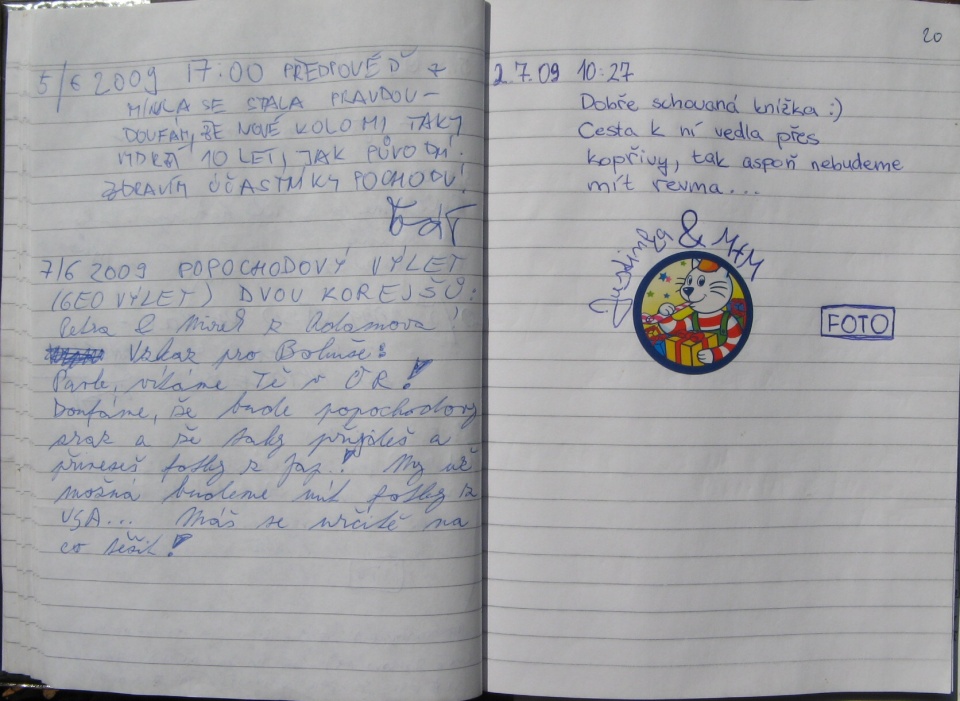 5/6 2009 17:00 PŘEDPOVĚĎ z
MINULA SE STALA PRAVDOU -
DOUFÁM, ŽE NOVÉ KOLO MI TAKY
VYDRŽÍ 10 LET, JAK PŮVODNÍ.
ZDRAVÍM ÚČASTNÍKY POCHODU!
7/6 2009 POPOCHODOVÝ VÝLET
(GEO VÝLET) DVOU KOREJŠŮ:
Petra & Mirek z Adamova!
Vzkaz pro Bohuše:
Pavle, vítáme Tě v ČR!
Doufáme, že bude popochodový
sraz a že taky přijdeš a
přineseš fotky z Jap.! My už
možná budeme mít fotky z
USA... Máš se určitě na
co těšit!
20
2.7.09 10:27
Dobře schovaná knížka :)
Cesta k ní vedla přes
kopřivy, tak aspoň nebudeme
mít revma...
& MM
FOTO